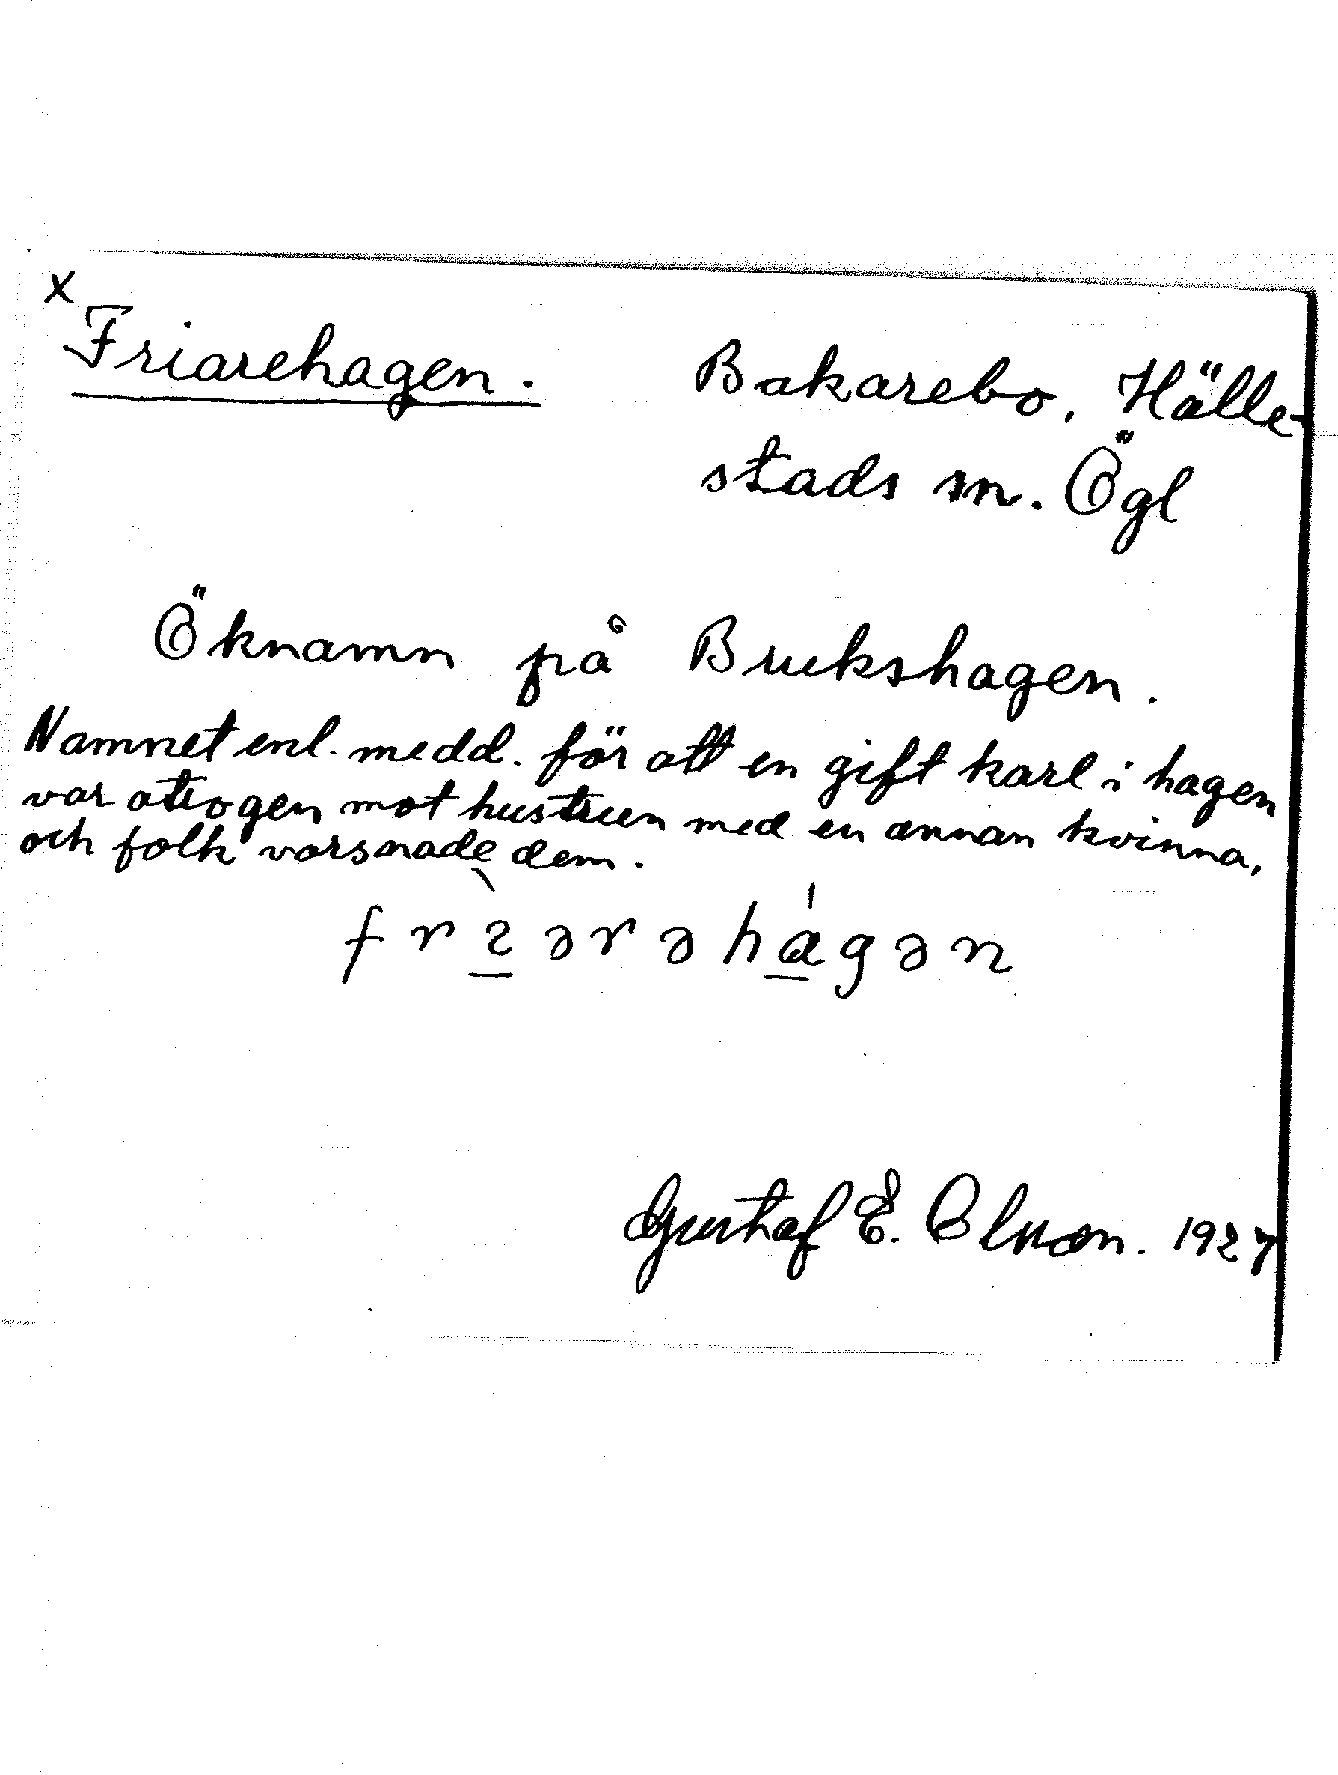 x
Friarehagen. Bakarebo, Hälle-
stads sn. Ögl
Öknamn på Brukshagen.
Namnet enl. medd. för att en gift karl i hagen
var otrogen mot hustrun med en annan kvinna,
och folk varsnade dem.
Gustaf E. Olsson. 1927